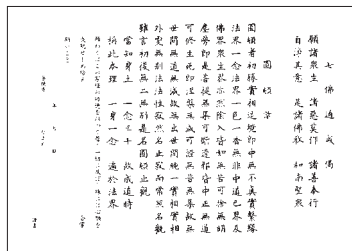 七佛通戒偈
願諸衆生 諸惡莫作 諸善奉行
自淨其意 是諸佛教 和南聖衆
圓頓章
圓頓者初縁實相造境即中無不真實繫縁
法界一念法界一色一香無非中道己界及
佛界衆生界亦然陰入皆如無苦可捨無明
塵勞即是菩提無集可斷邊邪皆中正無道
可修生死即涅槃無滅可證無苦無集故無
世間無道無滅故無出世間純一實相實相
外更無別法法性寂然名止寂而常照名觀
雖言初後無二無別是名圓頓止觀
當知身土 一念三千 故成道時
稱此本理 一身一念 遍於法界